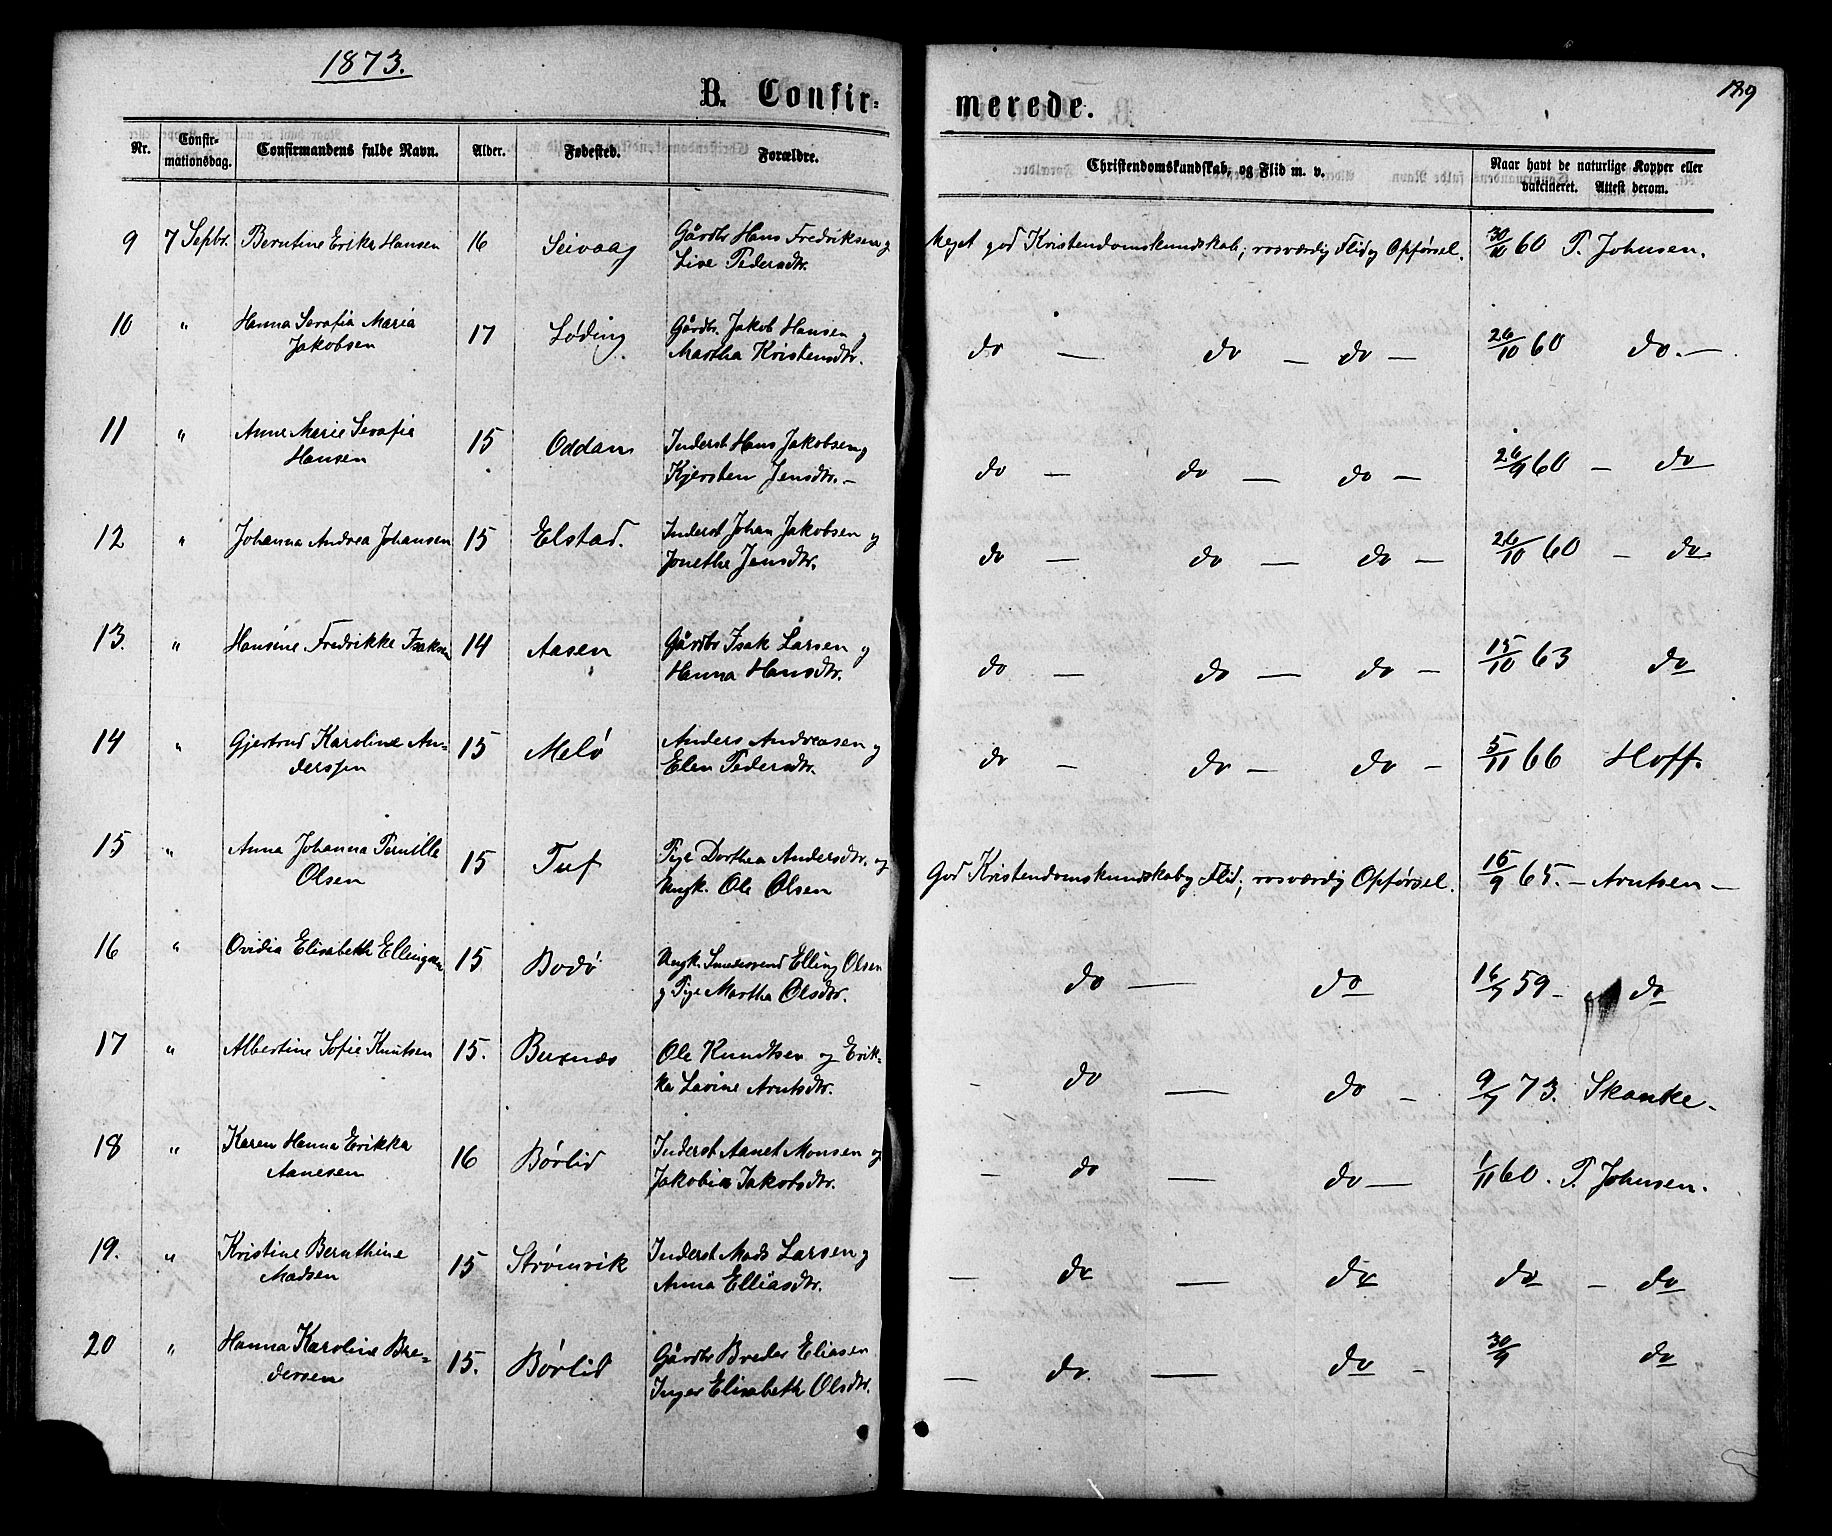 1873.
B. Confir=
merede.
189
Nr.
Confir-
mationsdag.
Confirmandens fulde Navn.
Alder.
Fødested.
Forældre.
Christendomskundskab, og Flid m. v.
Naar havt de naturlige Kopper eller
vakcineret. Attest derom.
9 7 Sepbr. Berntine Erika Hansen 16 Seivaag Gårdbr Hans Fredriksen og Meget god Kristendomskundskab, rosværdig Flid og Opførsel. 60 P. Johnsen.
Lise Pedersdtr.
10 " Hanna Serafia Maria 17 Løding Gårdbr. Jakob Hansen og do — do — do — 26/10 60 do. —
Jakobsen Martha Kristensdtr.
11 " Anne Marie Serafia 15 Oddan Inderst Hans Jakobsen og do — do — do — 26/9 60 — do
Hansen Kjersten Jensdtr. —
12 " Johanna Andrea Johansen 15 Elstad. Inderst Johan Jakobsen og do — do — do — 26/10 60 — do
Jonethe Jensdtr.
13. " Hansine Fredrikke Isaksen 14 Aasen Gårdbr Isak Larsen og do — do — do — 15/10 63 do
Hanna Hansdtr.
14 " Gjertrud Karoline An- 15 Melø Anders Andreasen og do — do — do — 5/11 66 Hoff.
dersen Elen Pedersdtr.
15 " Anna Johanna Pernille 15 Tuf Pige Dorthea Andersdtr. og God Kristendomskundskab og Flid, rosværdig Opførsel. 15/9 65. — Arntsen —
Olsen Ungk. Ole Olsen
16 " Ovidia Elisabeth Ellingsen 15 Bodø Ungk. Elling Olsen do — do 16/7 59 — do
og Pige Martha Olsdtr.
17 " Albertine Sofie Knutsen 15. Buxnæs Ole Knudtsen og Erik- - do — do — 9/7 73. Skanke —
ka Lavine Arntsdtr.
18 " Karen Hanna Erikka 16 Børlid Inderst Aanet Monsen og — do — do — 1/11 60. P. Johnsen.
Aanesen Jakobia Jakobsdtr.
19. " Kristine Bernthine 15 Strømvik Inderst Mads Larsen og — do — do do — do
Madsen Anna Elliasdtr.
20 " Hanna Karoline Bre- 15. Børlid Gårdbr Breder Eliasen — do. — do — 30/9 do
dersen Inger Elisabeth Olsdtr.